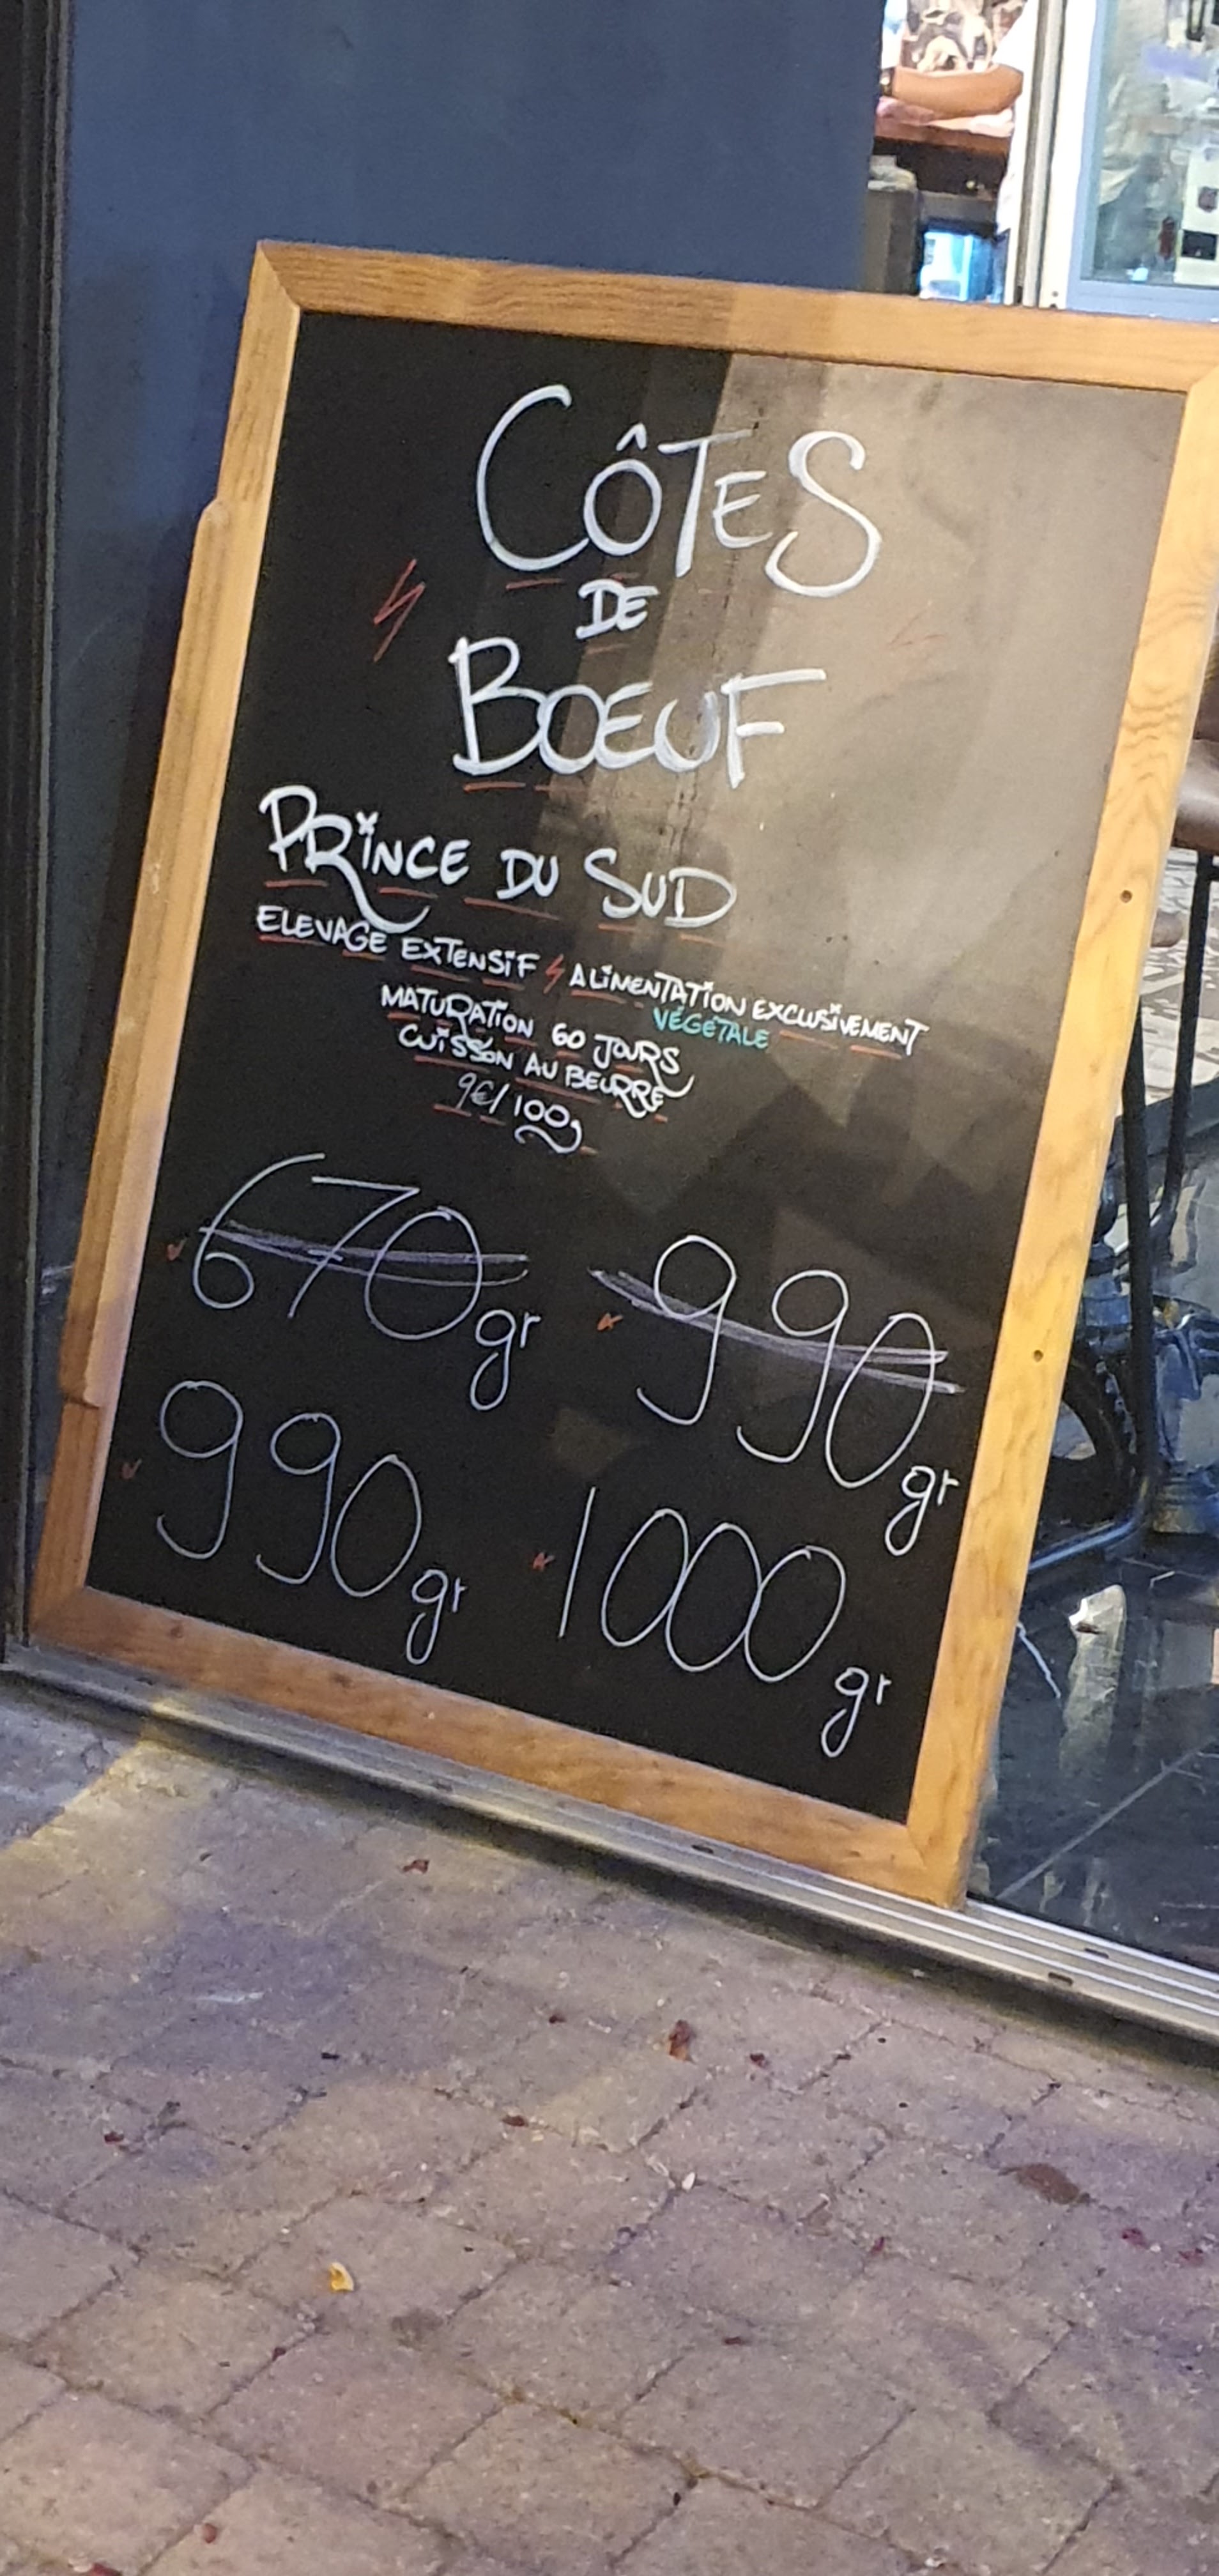 CÔTES
DE
BOEUF
PRINCE DU SUD
ELEVAGE EXTENSIF ALIMENTATION EXCLUSIVEMENT
VÉGÉTALE
MATURATION 60 JOURS
CUISSON AU BEURRE
9€/100g
670gr 990gr
990gr 1000gr